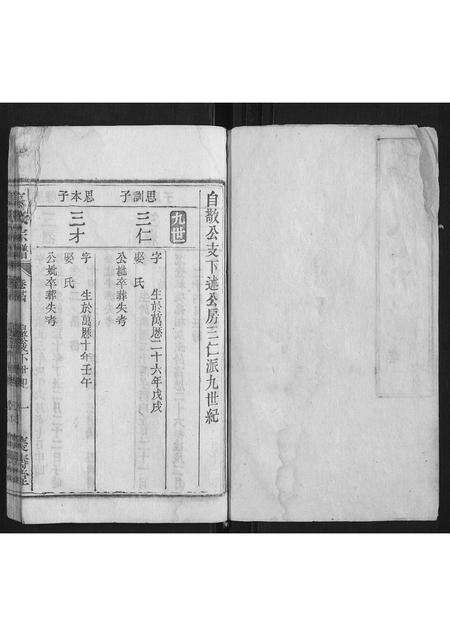 自敖公支下述公房三仁派九世紀
九世
思訓子
三仁
字 生於萬曆二十六年戊戌
娶氏
公妣卒葬失考
思本子
三才
字 生於萬曆十年壬午
娶氏
公妣卒葬失考